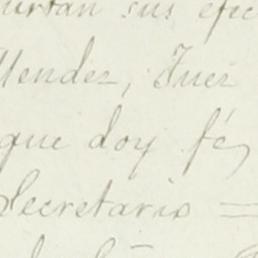 surtan sus efec
Mendez, Juez
que doy fé,
Secretario =